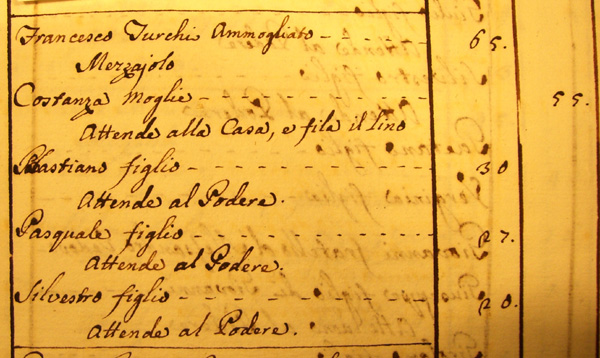 Francesco Turchi Ammogliato - - - 65.
Mezzajolo
Costanza Moglie - - - - - - - - - 55.
Attende alla Casa, e fila il lino
Bastiano figlio - - - - - - - - - 30
Attende al Podere.
Pasquale figlio - - - - - - - - - 27.
Attende al Podere.
Silvestro figlio - - - - - - - - - 20.
Attende al Podere.